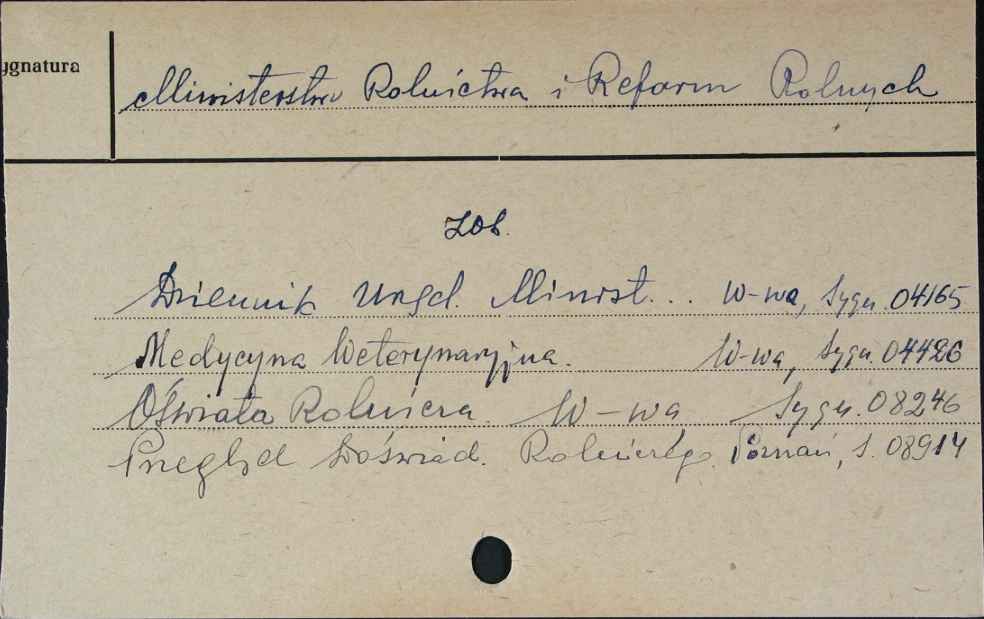 ygnatura
Ministerstwo Rolnictwa i Reform Rolnych
Zob.
Dziennik Urzęd. Minist... W-wa, Sygn. 04165
Medycyna Weterynaryjna. W-wa, Sygn. 04426
Oświata Rolnicza. W-wa Sygn. 08246
Przegląd Doświad. Rolniczego. Poznań, S. 08914